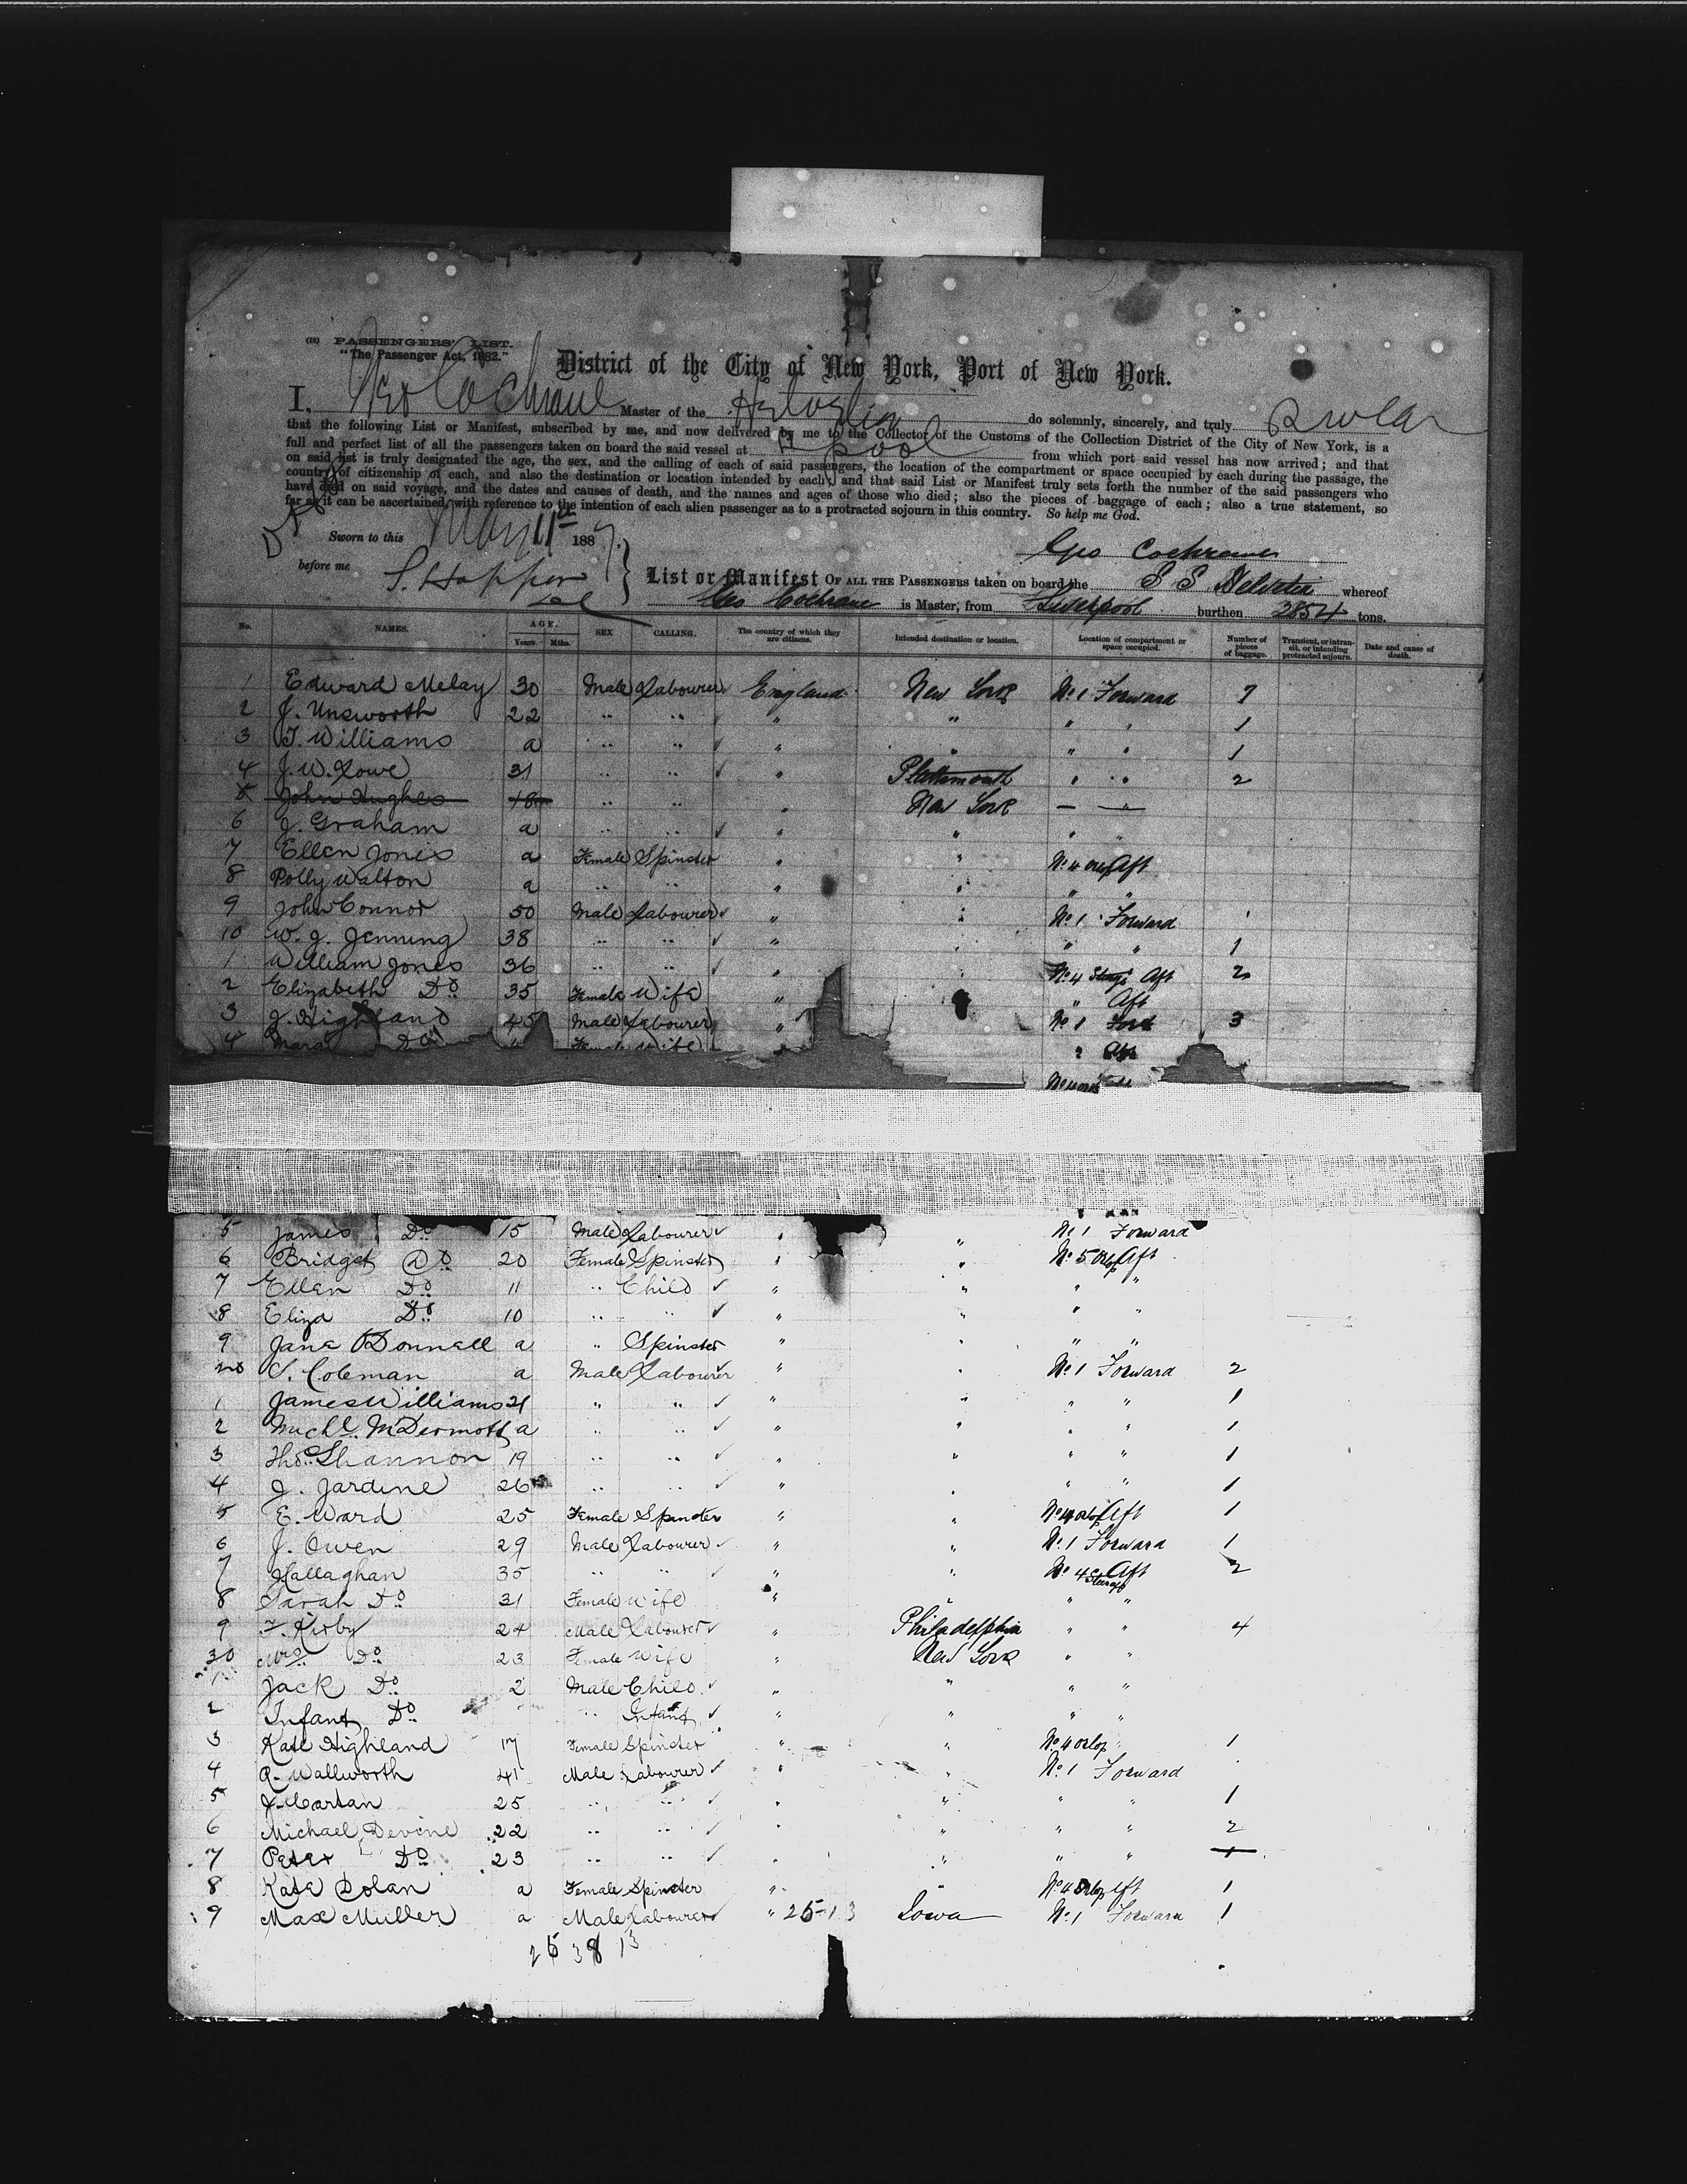 (13) PASSENGERS' LIST.
"The Passenger Act, 1882."
District of the City of New York, Port of New York.
I, Geo Cochrane Master of the Helvetia do solemnly, sincerely, and truly
that the following List or Manifest, subscribed by me, and now delivered by me to the Collector of the Customs of the Collection District of the City of New York, is a
full and perfect list of all the passengers taken on board the said vessel at L pool from which port said vessel has now arrived; and that
on said list is truly designated the age, the sex, and the calling of each of said passengers, the location of the compartment or space occupied by each during the passage, the
country of citizenship of each, and also the destination or location intended by each; and that said List or Manifest truly sets forth the number of the said passengers who
have died on said voyage, and the dates and causes of death, and the names and ages of those who died; also the pieces of baggage of each; also a true statement, so
far as it can be ascertained, with reference to the intention of each alien passenger as to a protracted sojourn in this country. So help me God.
Sworn to this May 11th 1887.
Geo Cochrane
before me S. Hopper
List or Manifest OF ALL THE PASSENGERS taken on board the S S Helvetia whereof
Geo Cochrane is Master, from Liverpool burthen 2854 tons.
No. NAMES. AGE. Years. Mths. SEX CALLING. The country of which they are citizens. Intended destination or location. Location of compartment or space occupied. Number of pieces of baggage. Transient, or intransit, or intending protracted sojourn. Date and cause of death.
1 Edward Melay 30 Male Labourer England New York No 1 Forward 7
2 J. Unsworth 22 " " " " " " 1
3 T. Williams a " " " " " " 1
4 J. W. Lowe 31 " " " Plattsmouth " " 2
5 John Hughes 18 " " " New York — "
6 J. Graham a " " " " " "
7 Ellen Jones a Female Spinster " " No 4 Orlop Aft
8 Polly Walton a " " " " " "
9 John Connor 50 Male Labourer " " No 1 Forward '
10 W. J. Jenning 38 " " " " " " 1
1 William Jones 36 " " " " No 4 Steerge Aft 2
2 Elizabeth Do 35 Female Wife " " Aft
3 J. Highland 45 Male Labourer " No 1 Ford 3
4 Do Female Wife " Aft
5 James Do 15 Male Labourer " " No 1 Forward
6 Bridget Do 20 Female Spinster " " No 5 Orlop Aft
7 Ellen Do 11 " Child " " " "
8 Eliza Do 10 " " " " " "
9 Jane O'Donnell a " Spinster " " " "
20 S. Coleman a Male Labourer " " No 1 Forward 2
1 James Williams 21 " " " " " " 1
2 Michl. McDermott a " " " " " " 1
3 Thos. Shannon 19 " " " " " " 1
4 J. Jardine 26 " " " " " " 1
5 E. Ward 25 Female Spinster " " No 4 Orlop Aft 1
6 J. Owen 29 Male Labourer " " No 1 Forward 1
7 Hallaghan 35 " " " " No 4 Steerge Aft 2
8 Sarah Do 31 Female Wife " " " "
9 F. Kirby 24 Male Labourer " Philadelphia " " 4
30 Mrs Do 23 Female Wife " New York " "
1 Jack Do 2 Male Child " " " "
2 Infant Do " Infant " " " "
3 Kate Highland 17 Female Spinster " " No 4 Orlop " 1
4 R. Wallworth 41 Male Labourer " " No 1 Forward
5 J. Cartan 25 " " " " " " 1
6 Michael Devine 22 " " " " " " 2
7 Peter Do 23 " " " " " " 1
8 Kate Dolan a Female Spinster " " No 4 Orlop Aft 1
9 Max Muller a Male Labourer " 25-13 Iowa No 1 Forward 1
25 38 13